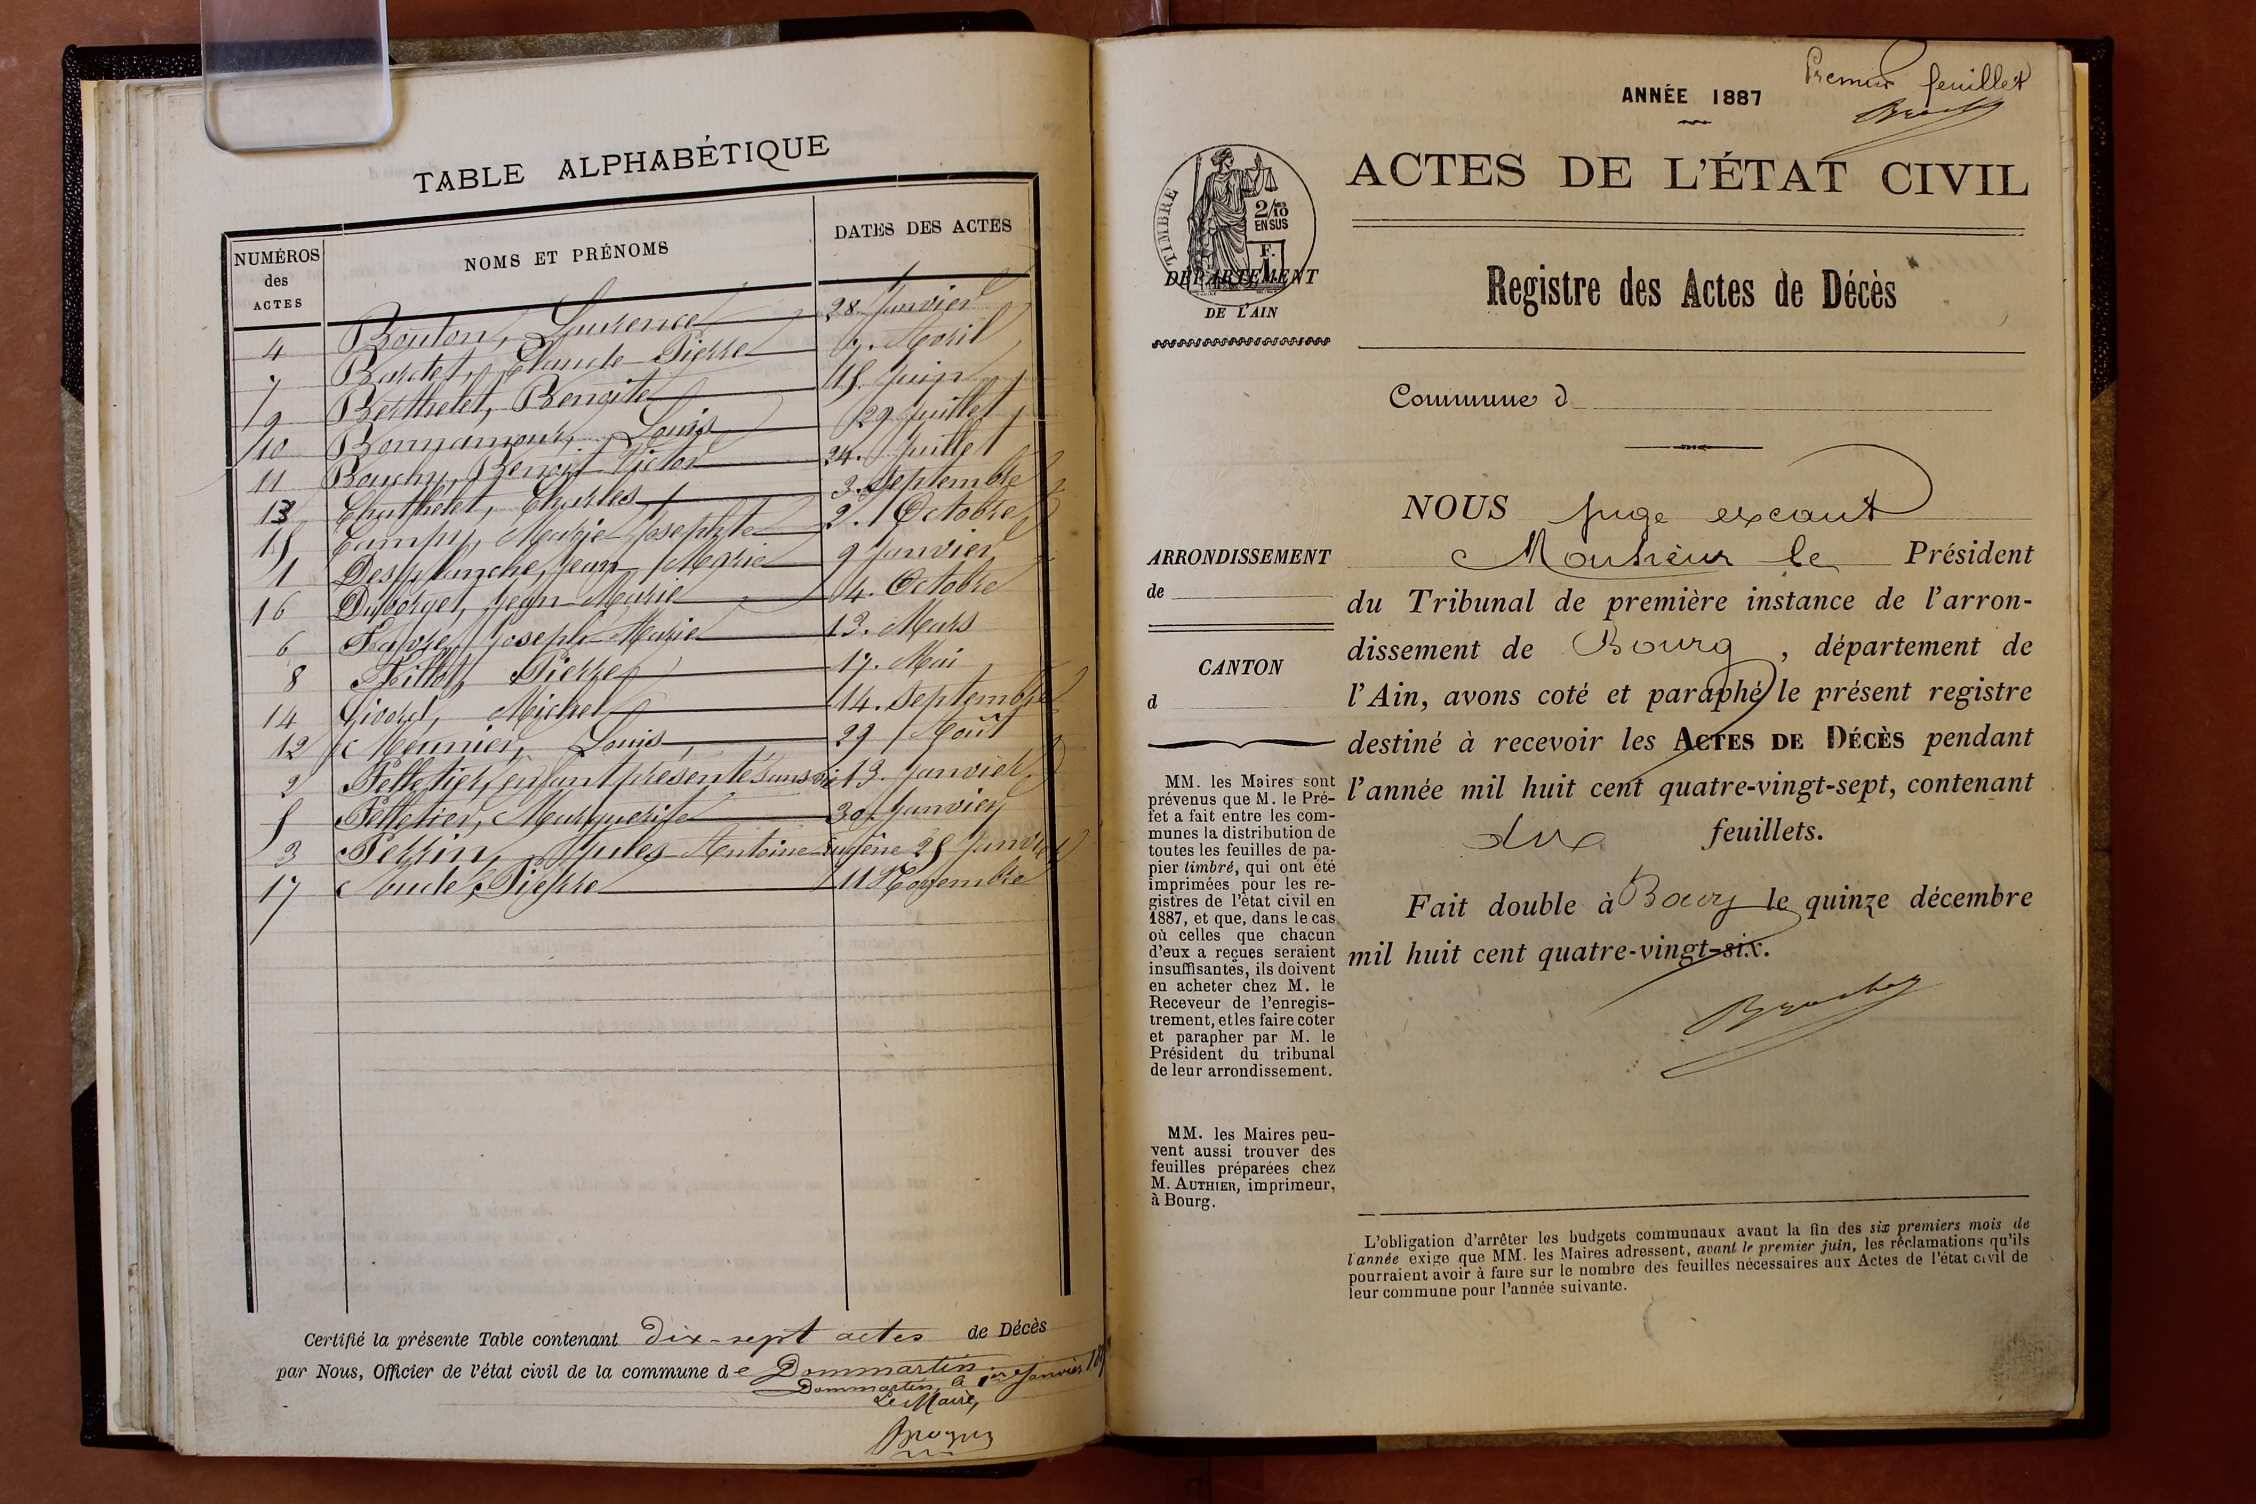 TABLE ALPHABÉTIQUE
NUMÉROS des ACTES
NOMS ET PRÉNOMS
DATES DES ACTES
4 Bouton, Laurence 28 Janvier
7 Bardet, Claude Pierre 7. Avril
9 Berthelet, Benoite 15. Juin
10 Bonnamour, Louis 29 Juillet
11 Bouchy, Benoit Victor 24. Juillet
13 Chathelet, Charles 3. Septembre
15 Campy, Marie Josephte 2. Octobre
1 Desplanche, Jean Marie 9 Janvier
16 Duborget, Jean Marie 4. Octobre
6 Favre, Joseph Marie 13. Mars
8 Fillot, Pierre 17. Mai
14 Givord, Michel 14. Septembre
12 Meunier, Louis 29 Août
2 Pelletier, enfant présenté sans vie 13. Janvier
5 Pelletier, Marguerite 30. Janvier
3 Perrin, Jules Antoine Eugène 25 Janvier
17 Pierre 11 Novembre
Certifié la présente Table contenant dix-sept actes de Décès
par Nous, Officier de l'état civil de la commune de Dommartin.
Dommartin, le 1er Janvier
Le Maire,
Premier feuillet
ANNÉE 1887
ACTES DE L'ÉTAT CIVIL
TIMBRE
2/10 EN SUS
F. 1
DÉPARTEMENT
DE L'AIN
Registre des Actes de Décès
Commune d
NOUS juge excant
Monsieur le Président
du Tribunal de première instance de l'arron-
dissement de Bourg, département de
l'Ain, avons coté et paraphé le présent registre
destiné à recevoir les ACTES DE DÉCÈS pendant
l'année mil huit cent quatre-vingt-sept, contenant
dix feuillets.
Fait double à Bourg le quinze décembre
mil huit cent quatre-vingt-six.
ARRONDISSEMENT
de
CANTON
d
MM. les Maires sont
prévenus que M. le Pré-
fet a fait entre les com-
munes la distribution de
toutes les feuilles de pa-
pier timbré, qui ont été
imprimées pour les re-
gistres de l'état civil en
1887, et que, dans le cas
où celles que chacun
d'eux a reçues seraient
insuffisantes, ils doivent
en acheter chez M. le
Receveur de l'enregis-
trement, et les faire coter
et parapher par M. le
Président du tribunal
de leur arrondissement.
MM. les Maires peu-
vent aussi trouver des
feuilles préparées chez
M. AUTHIER, imprimeur,
à Bourg.
L'obligation d'arrêter les budgets communaux avant la fin des six premiers mois de
l'année exige que MM. les Maires adressent, avant le premier juin, les réclamations qu'ils
pourraient avoir à faire sur le nombre des feuilles nécessaires aux Actes de l'état civil de
leur commune pour l'année suivante.